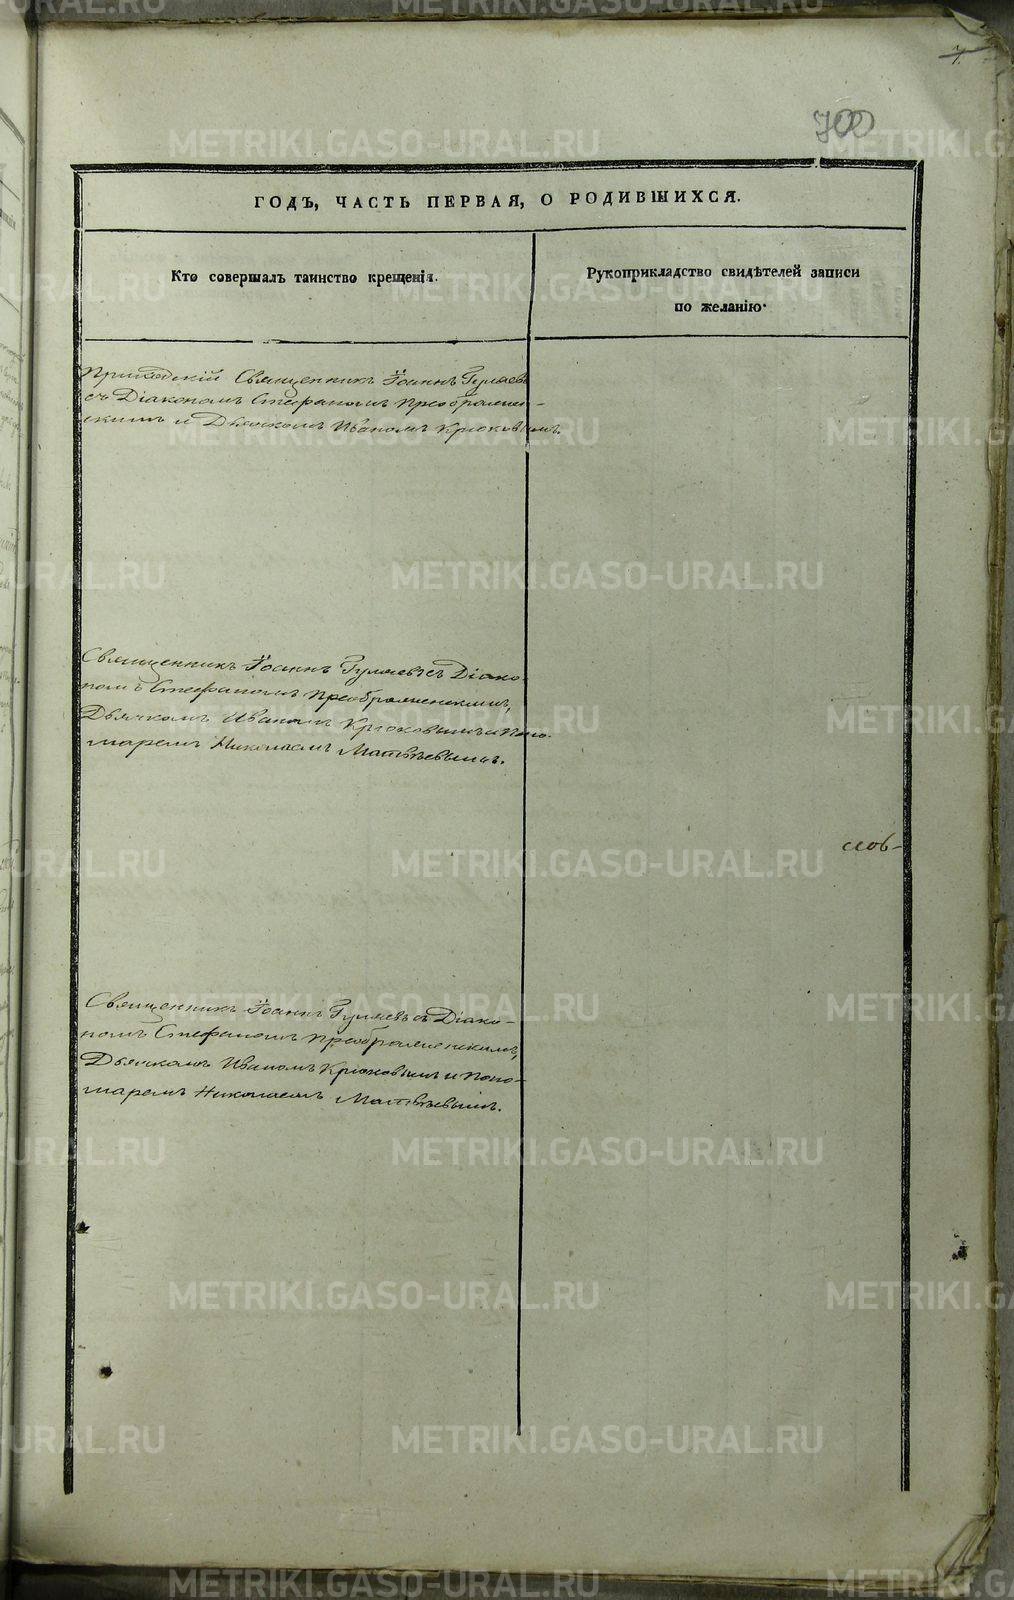 7.
700
ГОДЪ, ЧАСТЬ ПЕРВАЯ, О РОДИВШИХСЯ.
Кто совершалъ таинство крещенія.
Рукоприкладство свидѣтелей записи
по желанію.
Приходскій Священникъ Іоаннъ Гуляевъ
съ Діакономъ Стефаномъ Преображен-
скимъ и Дьячкомъ Иваномъ Крюковымъ.
Священникъ Іоаннъ Гуляевъ съ Діако-
номъ Стефаномъ Преображенскимъ,
Дьячкомъ Иваномъ Крюковымъ и Поно-
маремъ Николаемъ Матвѣевымъ.
слов-
Священникъ Іоаннъ Гуляевъ съ Діако-
номъ Стефаномъ Преображенскимъ,
Дьячкомъ Иваномъ Крюковымъ и Поно-
маремъ Николаемъ Матвѣевымъ.
METRIKI.GASO-URAL.RU